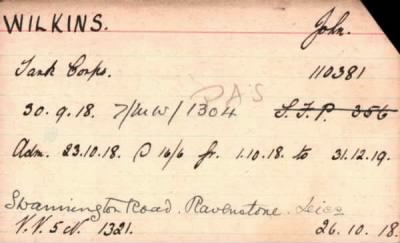 WILKINS. John.
Tank Corps. 110381
DAS
30.9.18. 7/MW/1304 S.F.P. 356
Adm. 23.10.18. @ 16/6 fr. 1.10.18. to 31.12.19.
Swannington Road. Ravenstone. Leics
V.V. 5 N. 1321. 26.10.18.